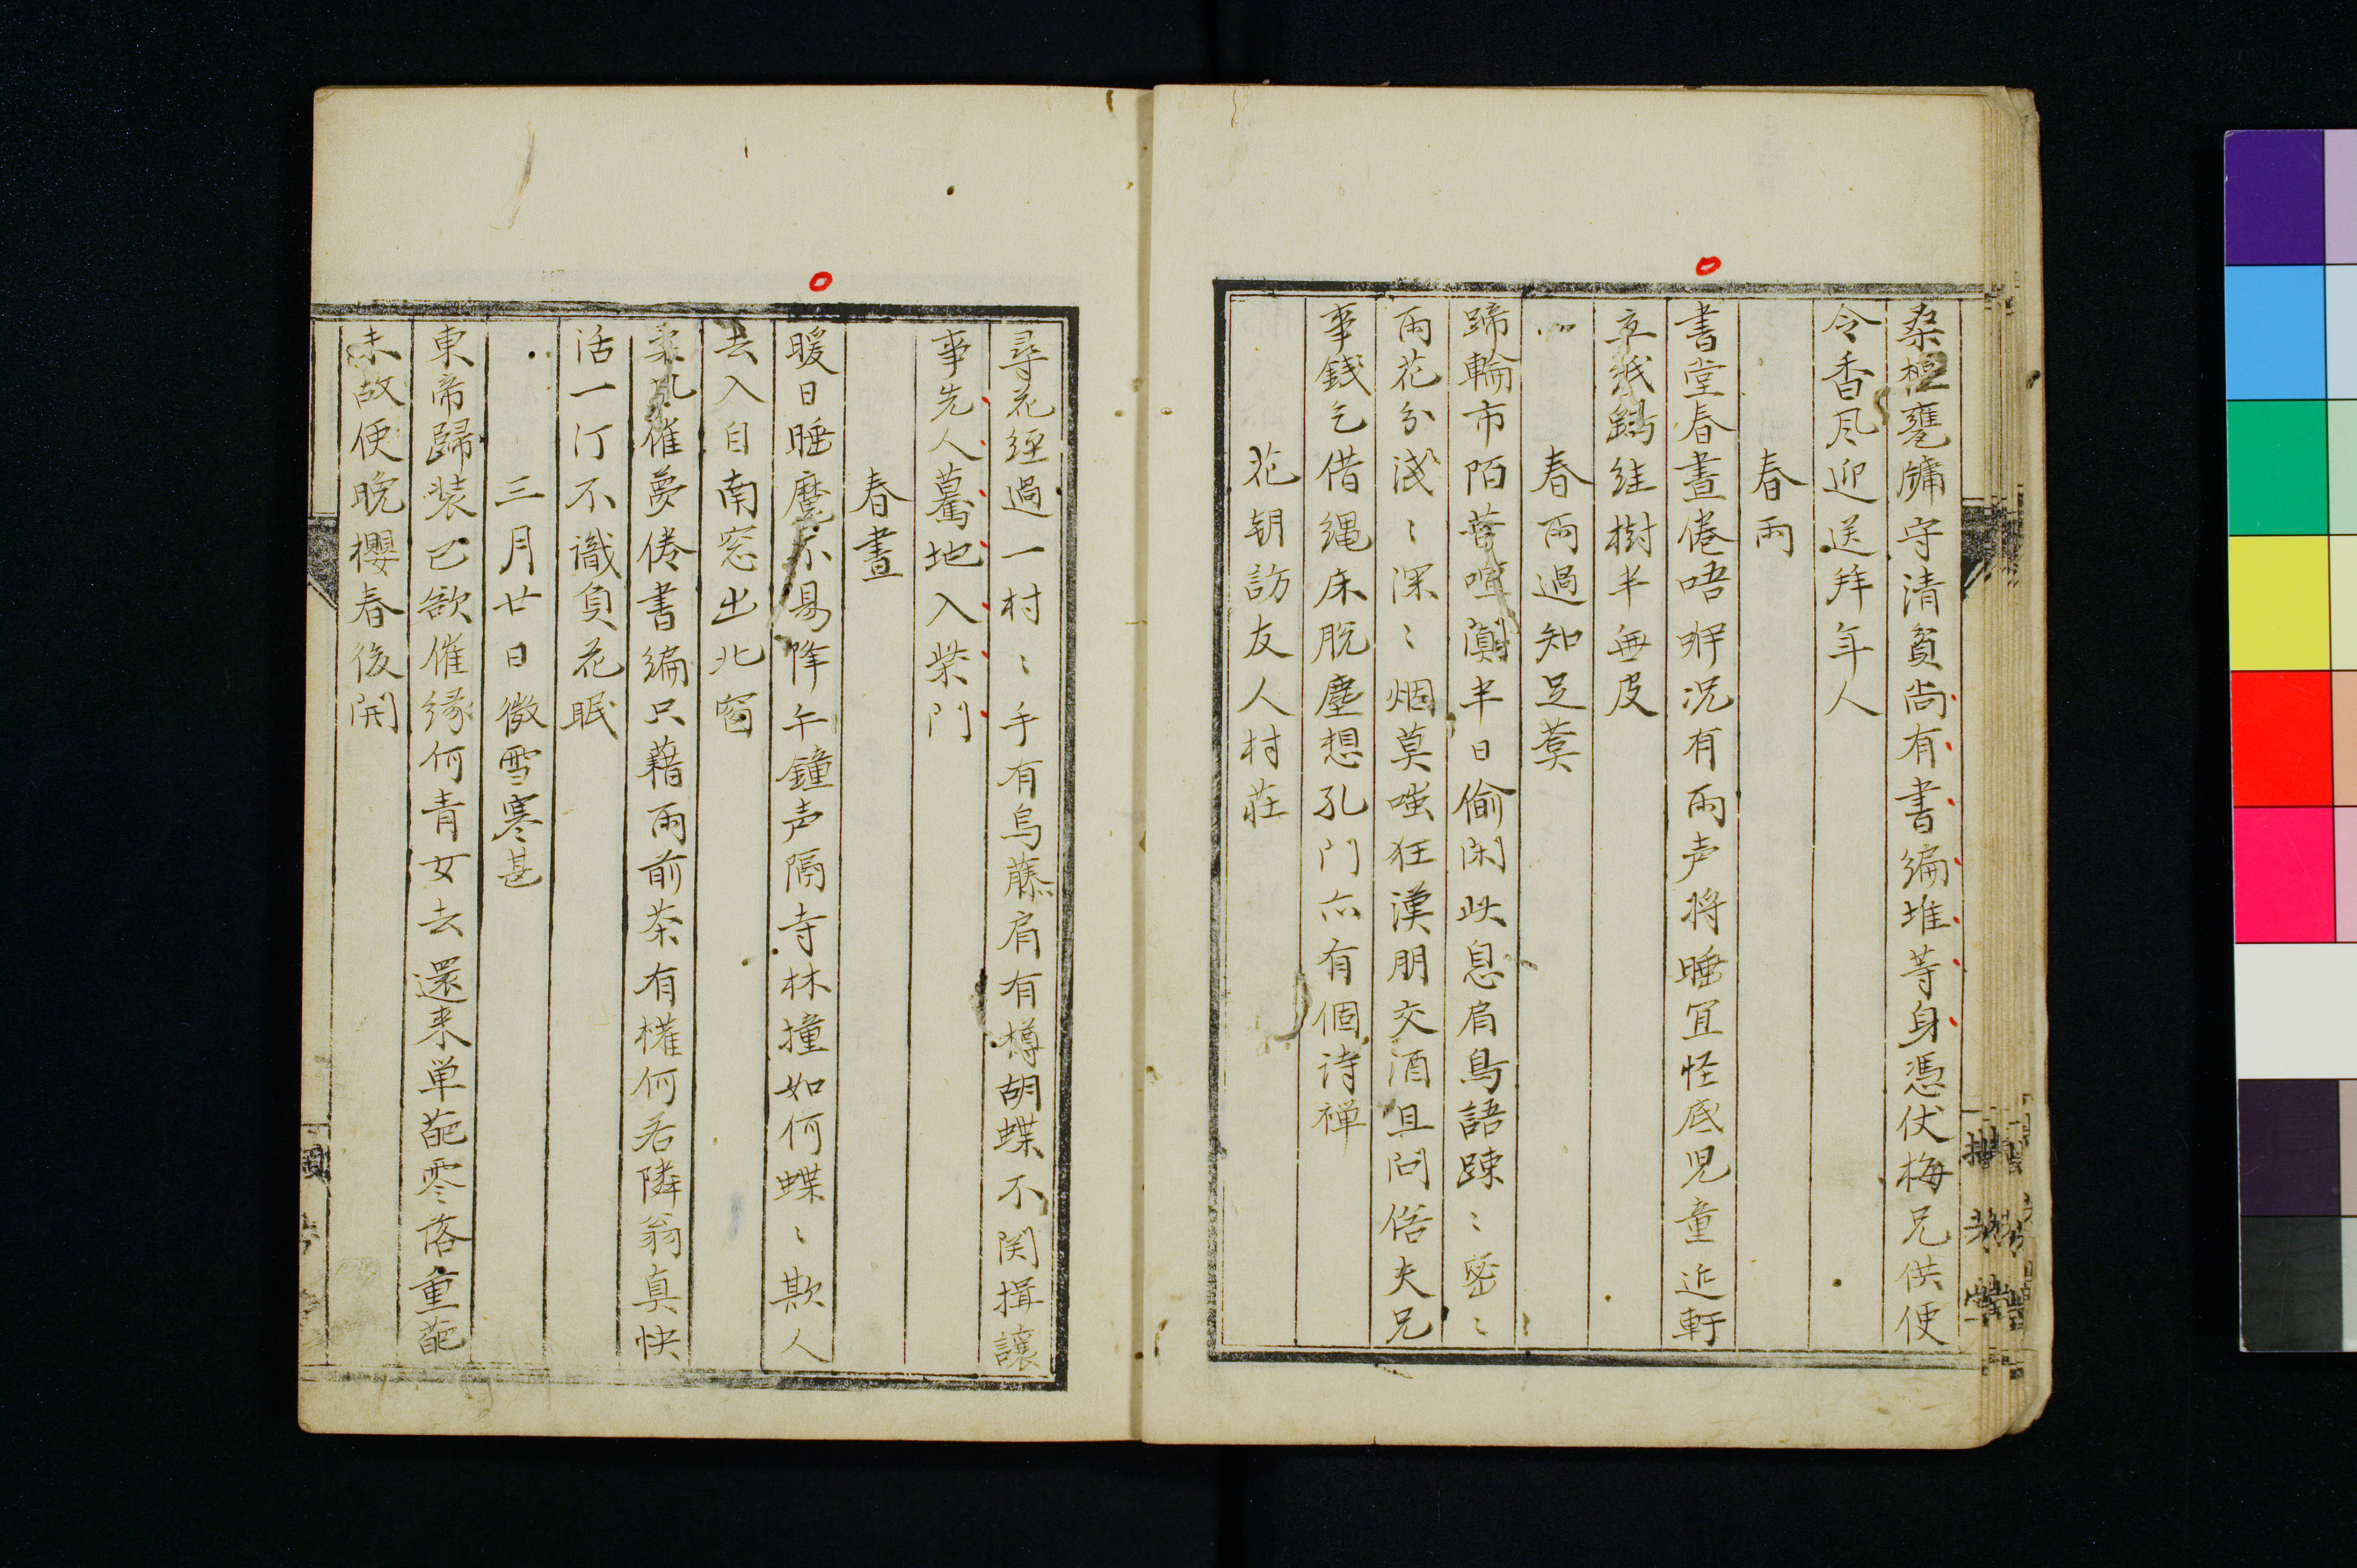 桑樞甕牖守清貧尚有書編堆等身憑伏梅兄供便
令香风迎送拜年人
春雨
書堂春晝倦唔咿况有雨声将睡宜怪底児童近軒
立紙鷂絓樹半無皮
春雨過知足菴
蹄輪市陌苦喧闐半日偷閑此息肩鳥語踈〻密〻
雨花分浅〻深〻烟莫嗤狂漢朋交酒且問俗夫兄
事錢乞借縄床脱塵想孔門亦有個诗禅
花朝訪友人村莊
尋花經過一村〻手有烏藤肩有樽胡蝶不関揖讓
事先人驀地入柴門
春晝
暖日睡魔不易降午鐘声隔寺林撞如何蝶〻欺人
去入自南窓出北窗
催夢倦書編只藉雨前茶有權何若隣翁真快
活一汀不識負花眠
三月廿日微雪寒甚
東帝歸装已欲催縁何青女去還来単葩零落重葩
未故便晩櫻春後開